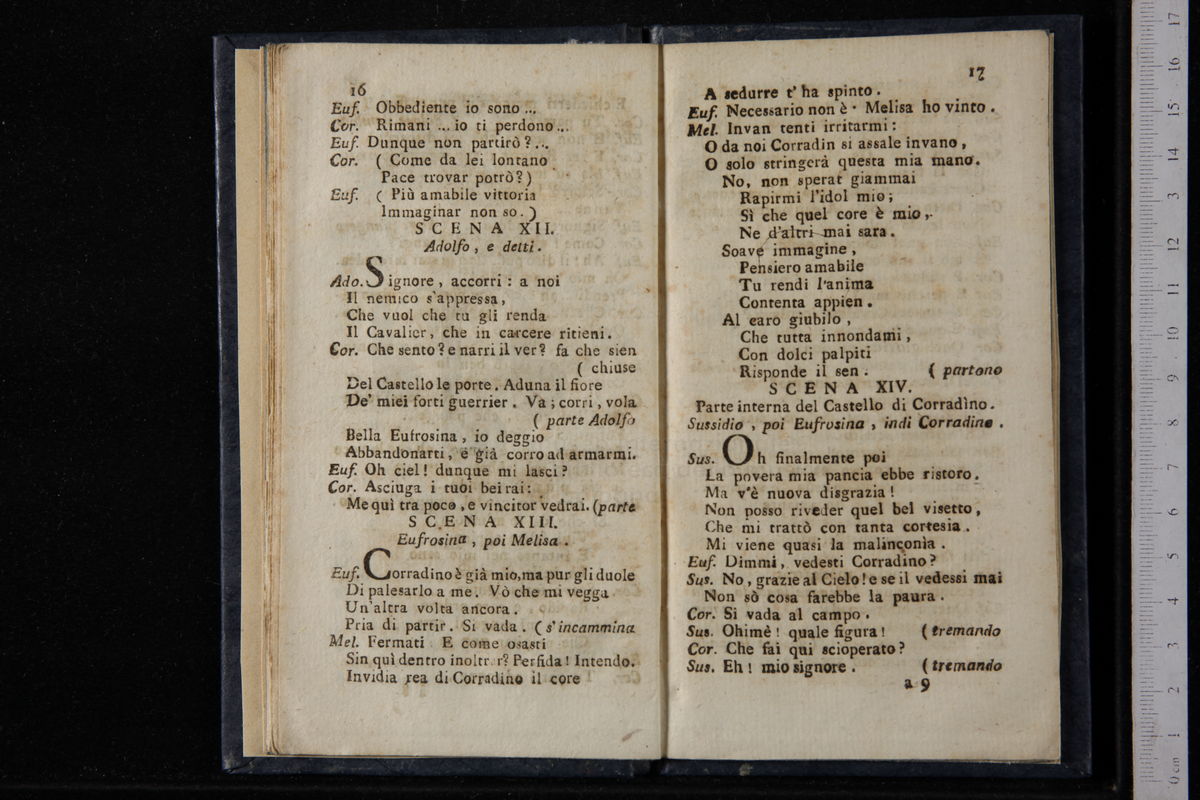 16
Euf. Obbediente io sono ...
Cor. Rimani ... io ti perdono ...
Euf. Dunque non partirò ? ...
Cor. ( Come da lei lontano
Pace trovar potrò ? )
Euf. ( Più amabile vittoria
Immaginar non so . )
SCENA XII.
Adolfo , e detti .
Ado. Signore , accorri : a noi
Il nemico s'appressa ,
Che vuol che tu gli renda
Il Cavalier , che in carcere ritieni .
Cor. Che sento ? e narri il ver ? fa che sien
( chiuse
Del Castello le porte . Aduna il fiore
De' miei forti guerrier . Va ; corri , vola
( parte Adolfo
Bella Eufrosina , io deggio
Abbandonarti , e già corro ad armarmi .
Euf. Oh ciel ! dunque mi lasci ?
Cor. Asciuga i tuoi bei rai :
Me quì tra poco , e vincitor vedrai . ( parte
SCENA XIII.
Eufrosina , poi Melisa .
Euf. Corradino è già mio, ma pur gli duole
Di palesarlo a me . Vò che mi vegga
Un'altra volta ancora .
Pria di partir . Si vada . ( s'incammina
Mel. Fermati E come osasti
Sin quì dentro inoltr r? Perfida ! Intendo .
Invidia rea di Corradino il core
17
A sedurre t'ha spinto .
Euf. Necessario non è · Melisa ho vinto .
Mel. Invan tenti irritarmi :
O da noi Corradin si assale invano ,
O solo stringerà questa mia mano .
No, non sperar giammai
Rapirmi l'idol mio ;
Sì che quel core è mio ,
Ne d'altri mai sara .
Soave immagine ,
Pensiero amabile
Tu rendi l'anima
Contenta appien .
Al caro giubilo ,
Che tutta innondami ,
Con dolci palpiti
Risponde il sen . ( partono
SCENA XIV.
Parte interna del Castello di Corradìno .
Sussidio , poi Eufrosina , indi Corradino .
Sus. Oh finalmente poi
La povera mia pancia ebbe ristoro .
Ma v'è nuova disgrazia !
Non posso riveder quel bel visetto ,
Che mi trattò con tanta cortesia .
Mi viene quasi la malinconìa .
Euf. Dimmi , vedesti Corradino ?
Sus. No , grazie al Cielo ! e se il vedessi mai
Non sò cosa farebbe la paura .
Cor. Si vada al campo .
Sus. Ohimè ! quale figura ! ( tremando
Cor. Che fai qui scioperato ?
Sus. Eh ! mio signore . ( tremando
a 9
0 cm 1 2 3 4 5 6 7 8 9 10 11 12 13 14 15 16 17